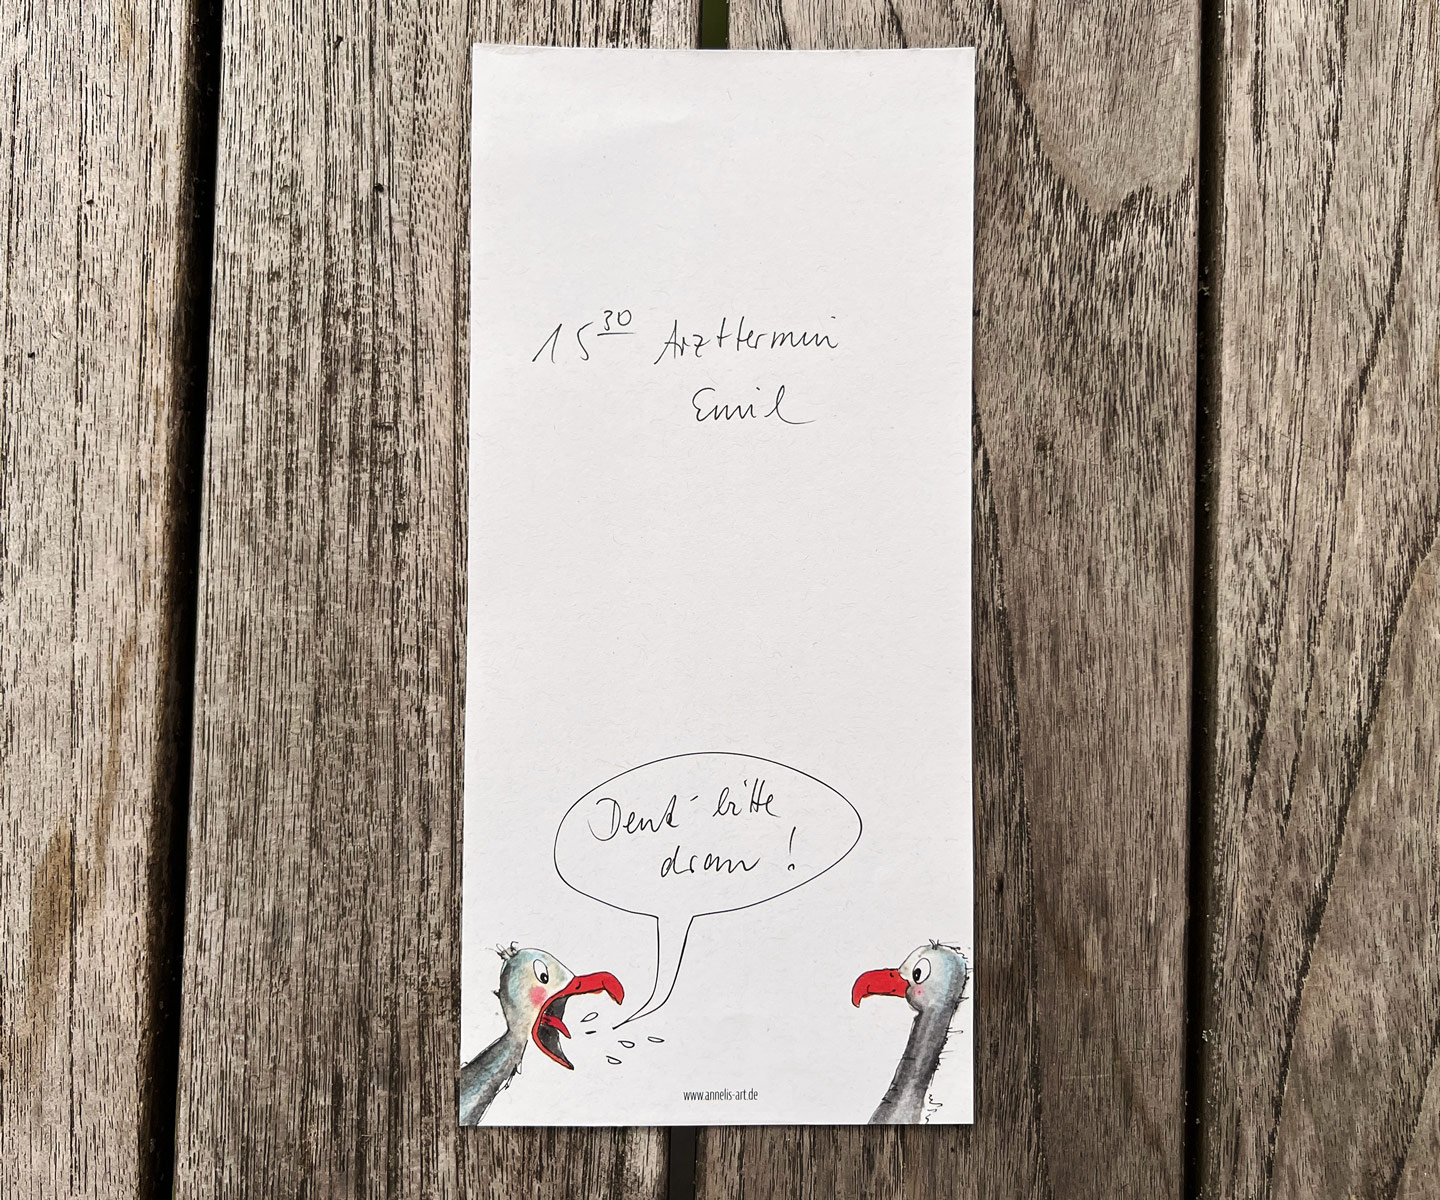 15 30 Arzttermin
Emil
Denk' bitte
dran!
www.annelis-art.de